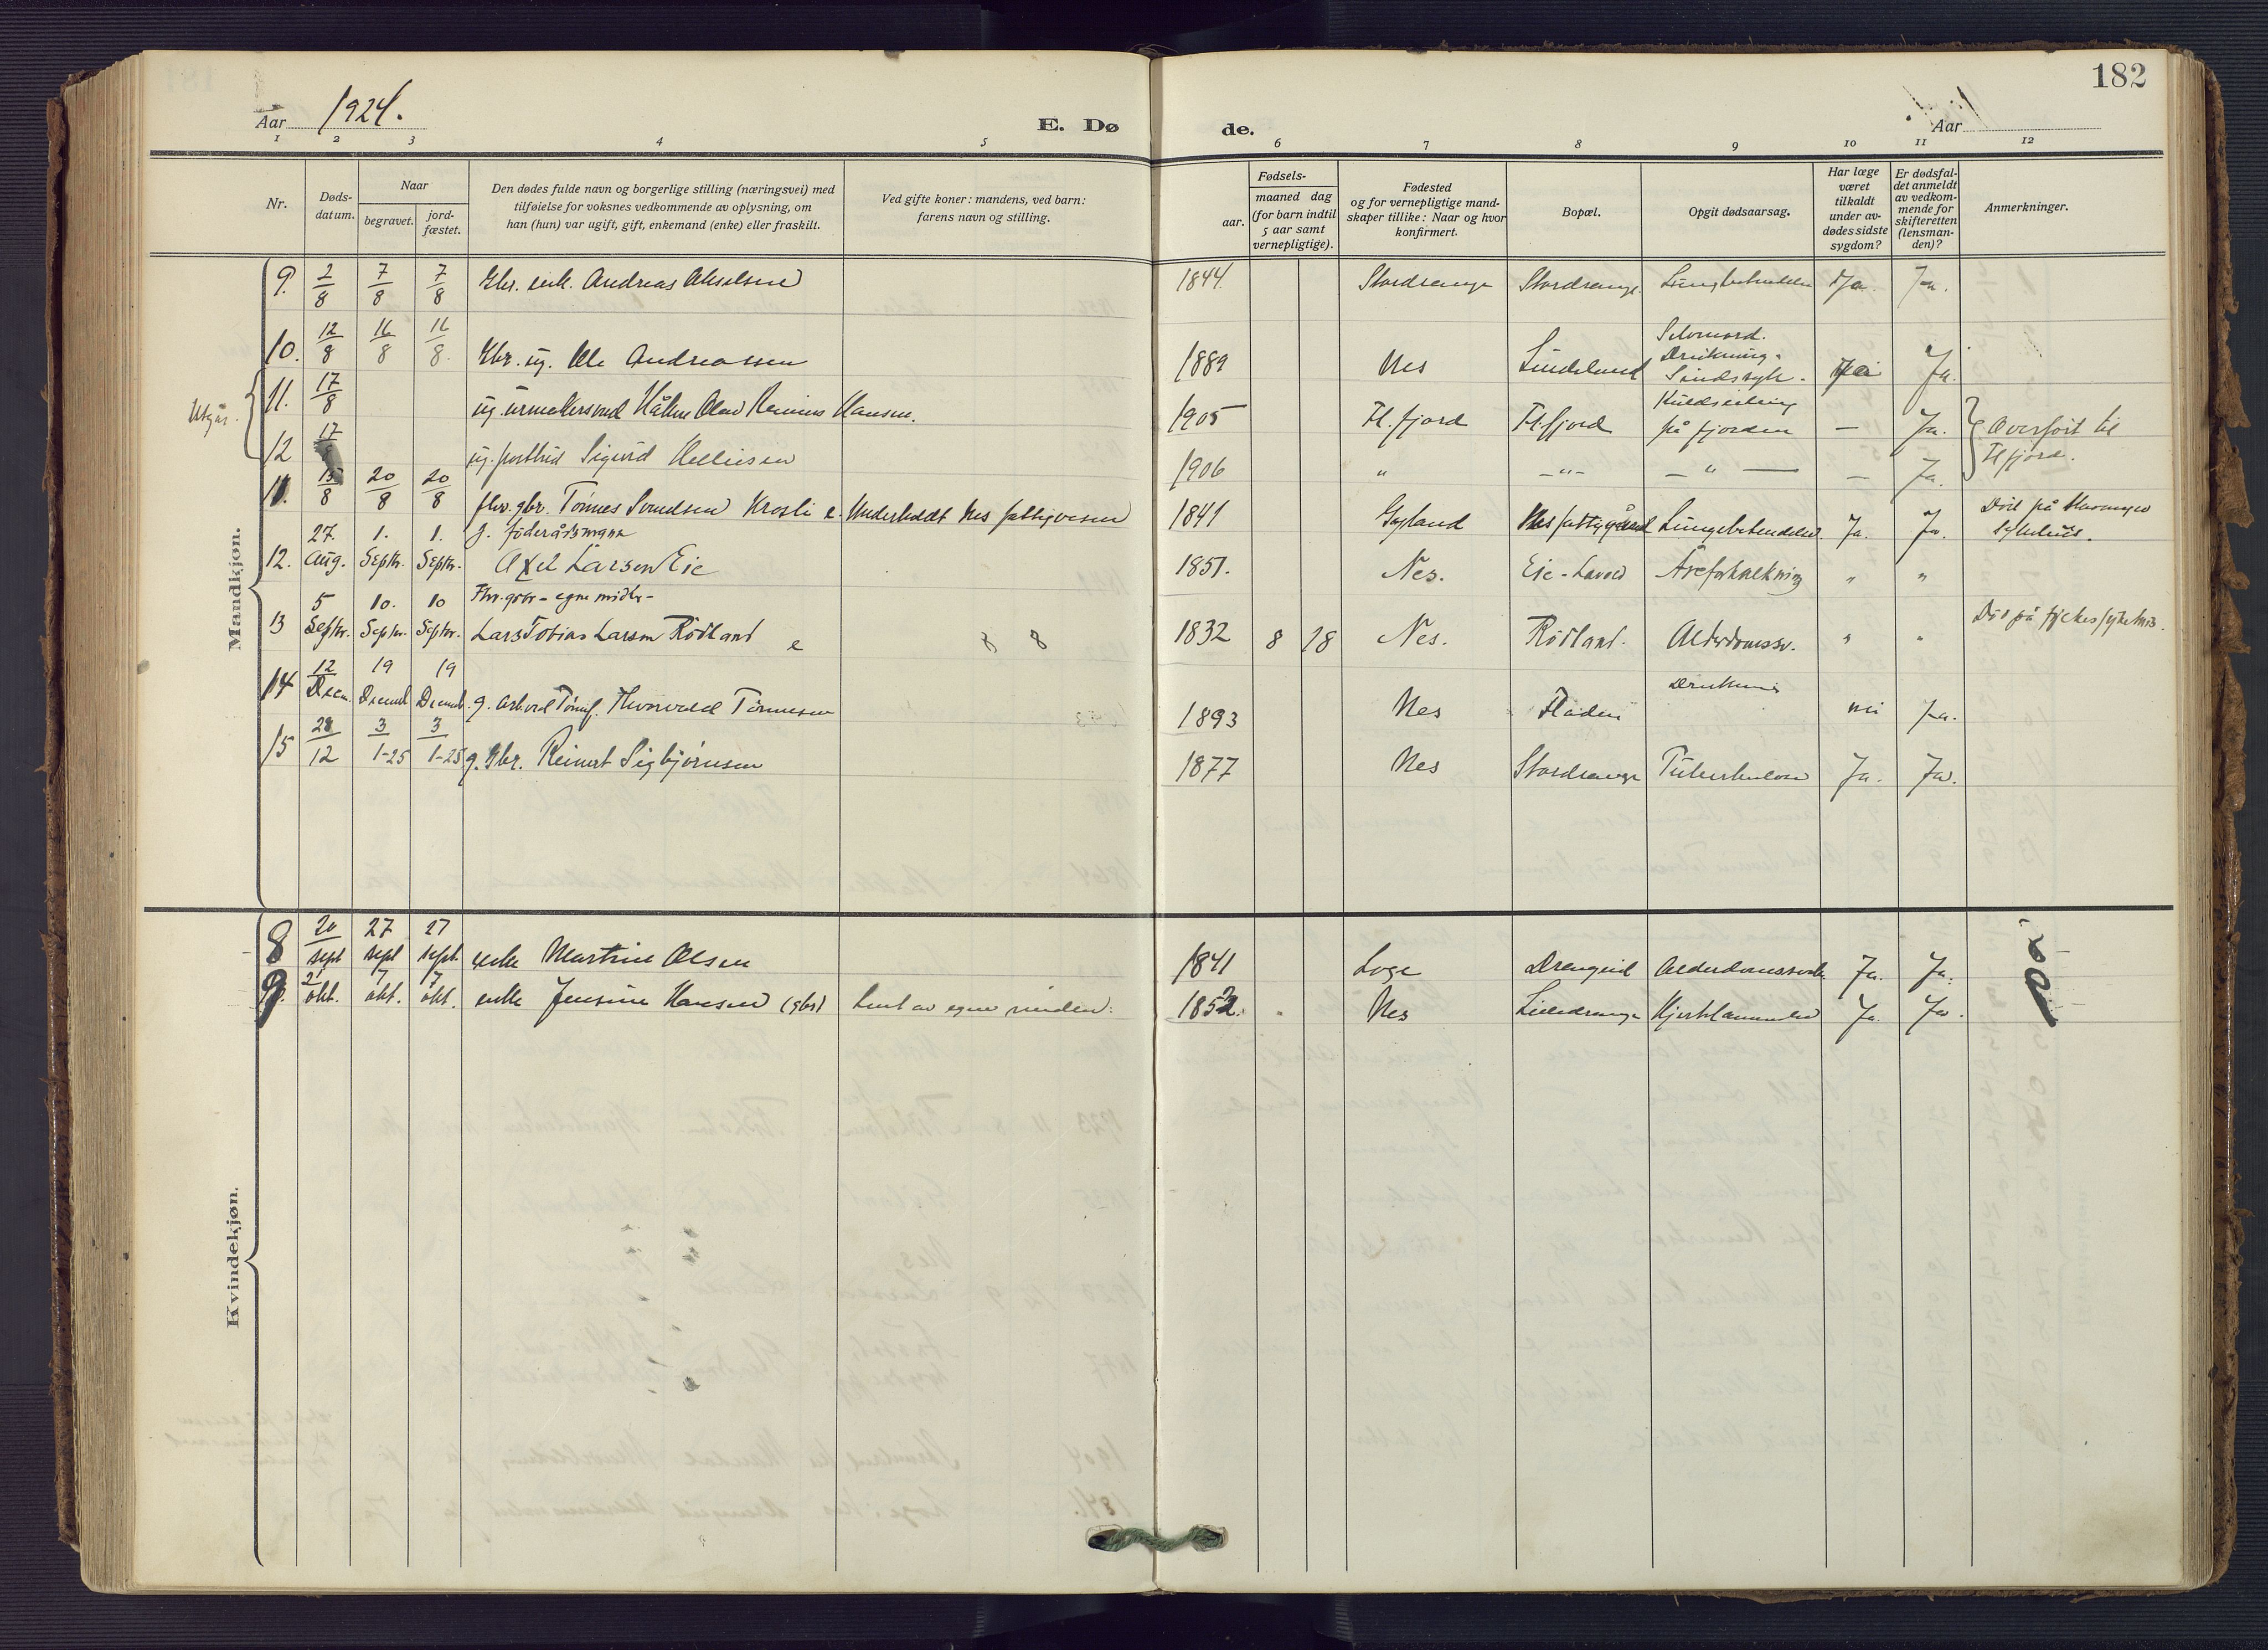 182
Aar 1924.
E. Dø
de.
Aar
1 2 3 4 5 6 7 8 9 10 11 12
Nr.
Døds-
datum.
Naar
begravet.
jord-
fæstet.
Den dødes fulde navn og borgerlige stilling (næringsvei) med
tilføielse for voksnes vedkommende av oplysning, om
han (hun) var ugift, gift, enkemand (enke) eller fraskilt.
Ved gifte koner: mandens, ved barn:
farens navn og stilling.
Fødsels-
aar.
maaned dag
(for barn indtil
5 aar samt
vernepligtige).
Fødested
og for vernepligtige mand-
skaper tillike: Naar og hvor
konfirmert.
Bopæl.
Opgit dødsaarsag.
Har læge
været
tilkaldt
under av-
dødes sidste
sygdom?
Er dødsfal-
det anmeldt
av vedkom-
mende for
skifteretten
(lensman-
den)?
Anmerkninger.
Mandkjøn.
9. 2/8 7/8 7/8 Gbr. enk. Andreas Akselsen 1844. Stordrange Stordrange Ja. Ja.
10. 12/8 16/8 16/8. Gbr. ug. Ole Andreassen 1889 Nes Lindeland Selvmord. Drukning. Sindssyk. Ja Ja.
Utgår.
11. 17/8 ug. Håkon Olav Hansen. 1905 Fl. fjord Fl. fjord Kuldseiling på fjorden — Ja.
12 17 ug. Sigurd 1906 " —"— —"— — Ja.
Overført til
Fl fjord.
11. 15/8 20/8 20/8 fhv. gbr. Tønnes Svendsen Krosli e. Underholdt Nes fattigvesen 1841 Gyland Nes fattiggård Lungebetendelse. Ja. Ja. Død på
sykehus.
12. 27. Aug. 1. Septr. 1. Septr. g. föderådsmann
Axel Larsen Eie 1851. Nes. Eie - Åreforkalkning " "
13 5 Septr. 10. Septr. 10 Septr. Fhv. gbr - egne midler -
Lars Tobias Larsen Rödland e 8 8 1832 8 28 Nes. Rödland. Alderdomssv. " " Død på sykehus.
14 12 Decem. 19 Decemb 19 Decemb. g. Thorvald Tønnesen 1893 Nes Fladen Drukning nei Ja.
15 28/12 3/1-25 3/1-25 g. Gbr. Reinert Sigbjørnsen 1877 Nes Stordrange Tuberkulose Ja. Ja.
Kvindekjøn.
8 20 sept 27 sept 27 sept. enke Martine Olsen 1841 Loge Drengeid Alderdomssvak. Ja. Ja.
9. 2 okt. 7 okt. 7 okt. enke Jensine Hansen (gbr) Levet av egne midler. 1852. Nes Lilledrange Hjertelammelse Ja. Ja.